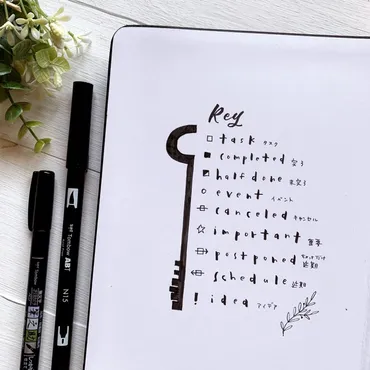 Key
□ task タスク
■ completed 完了
half done 未完了
○ event イベント
canceled キャンセル
☆ important 重要
postponed 延期
schedule 延期
! idea アイデア
Tombow ABT N15